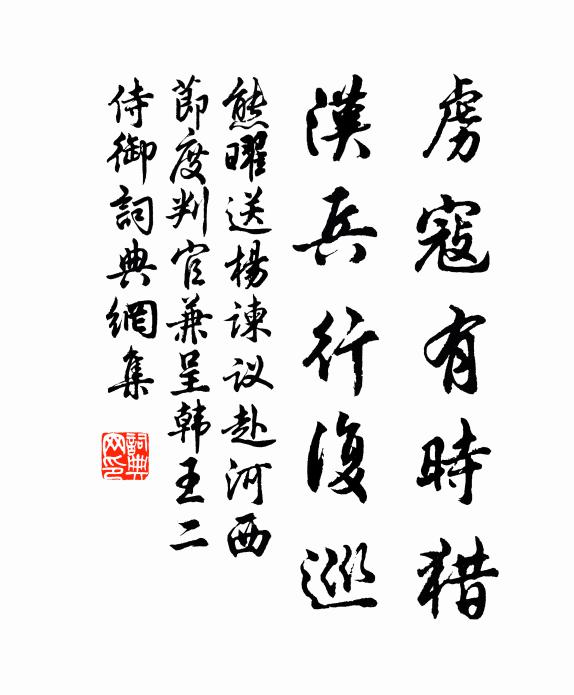 虏寇有時猎
漢兵行復巡
熊曜送楊諫议赴河西
節度判官兼呈韩王二
侍御詞典網集
詞典
网印